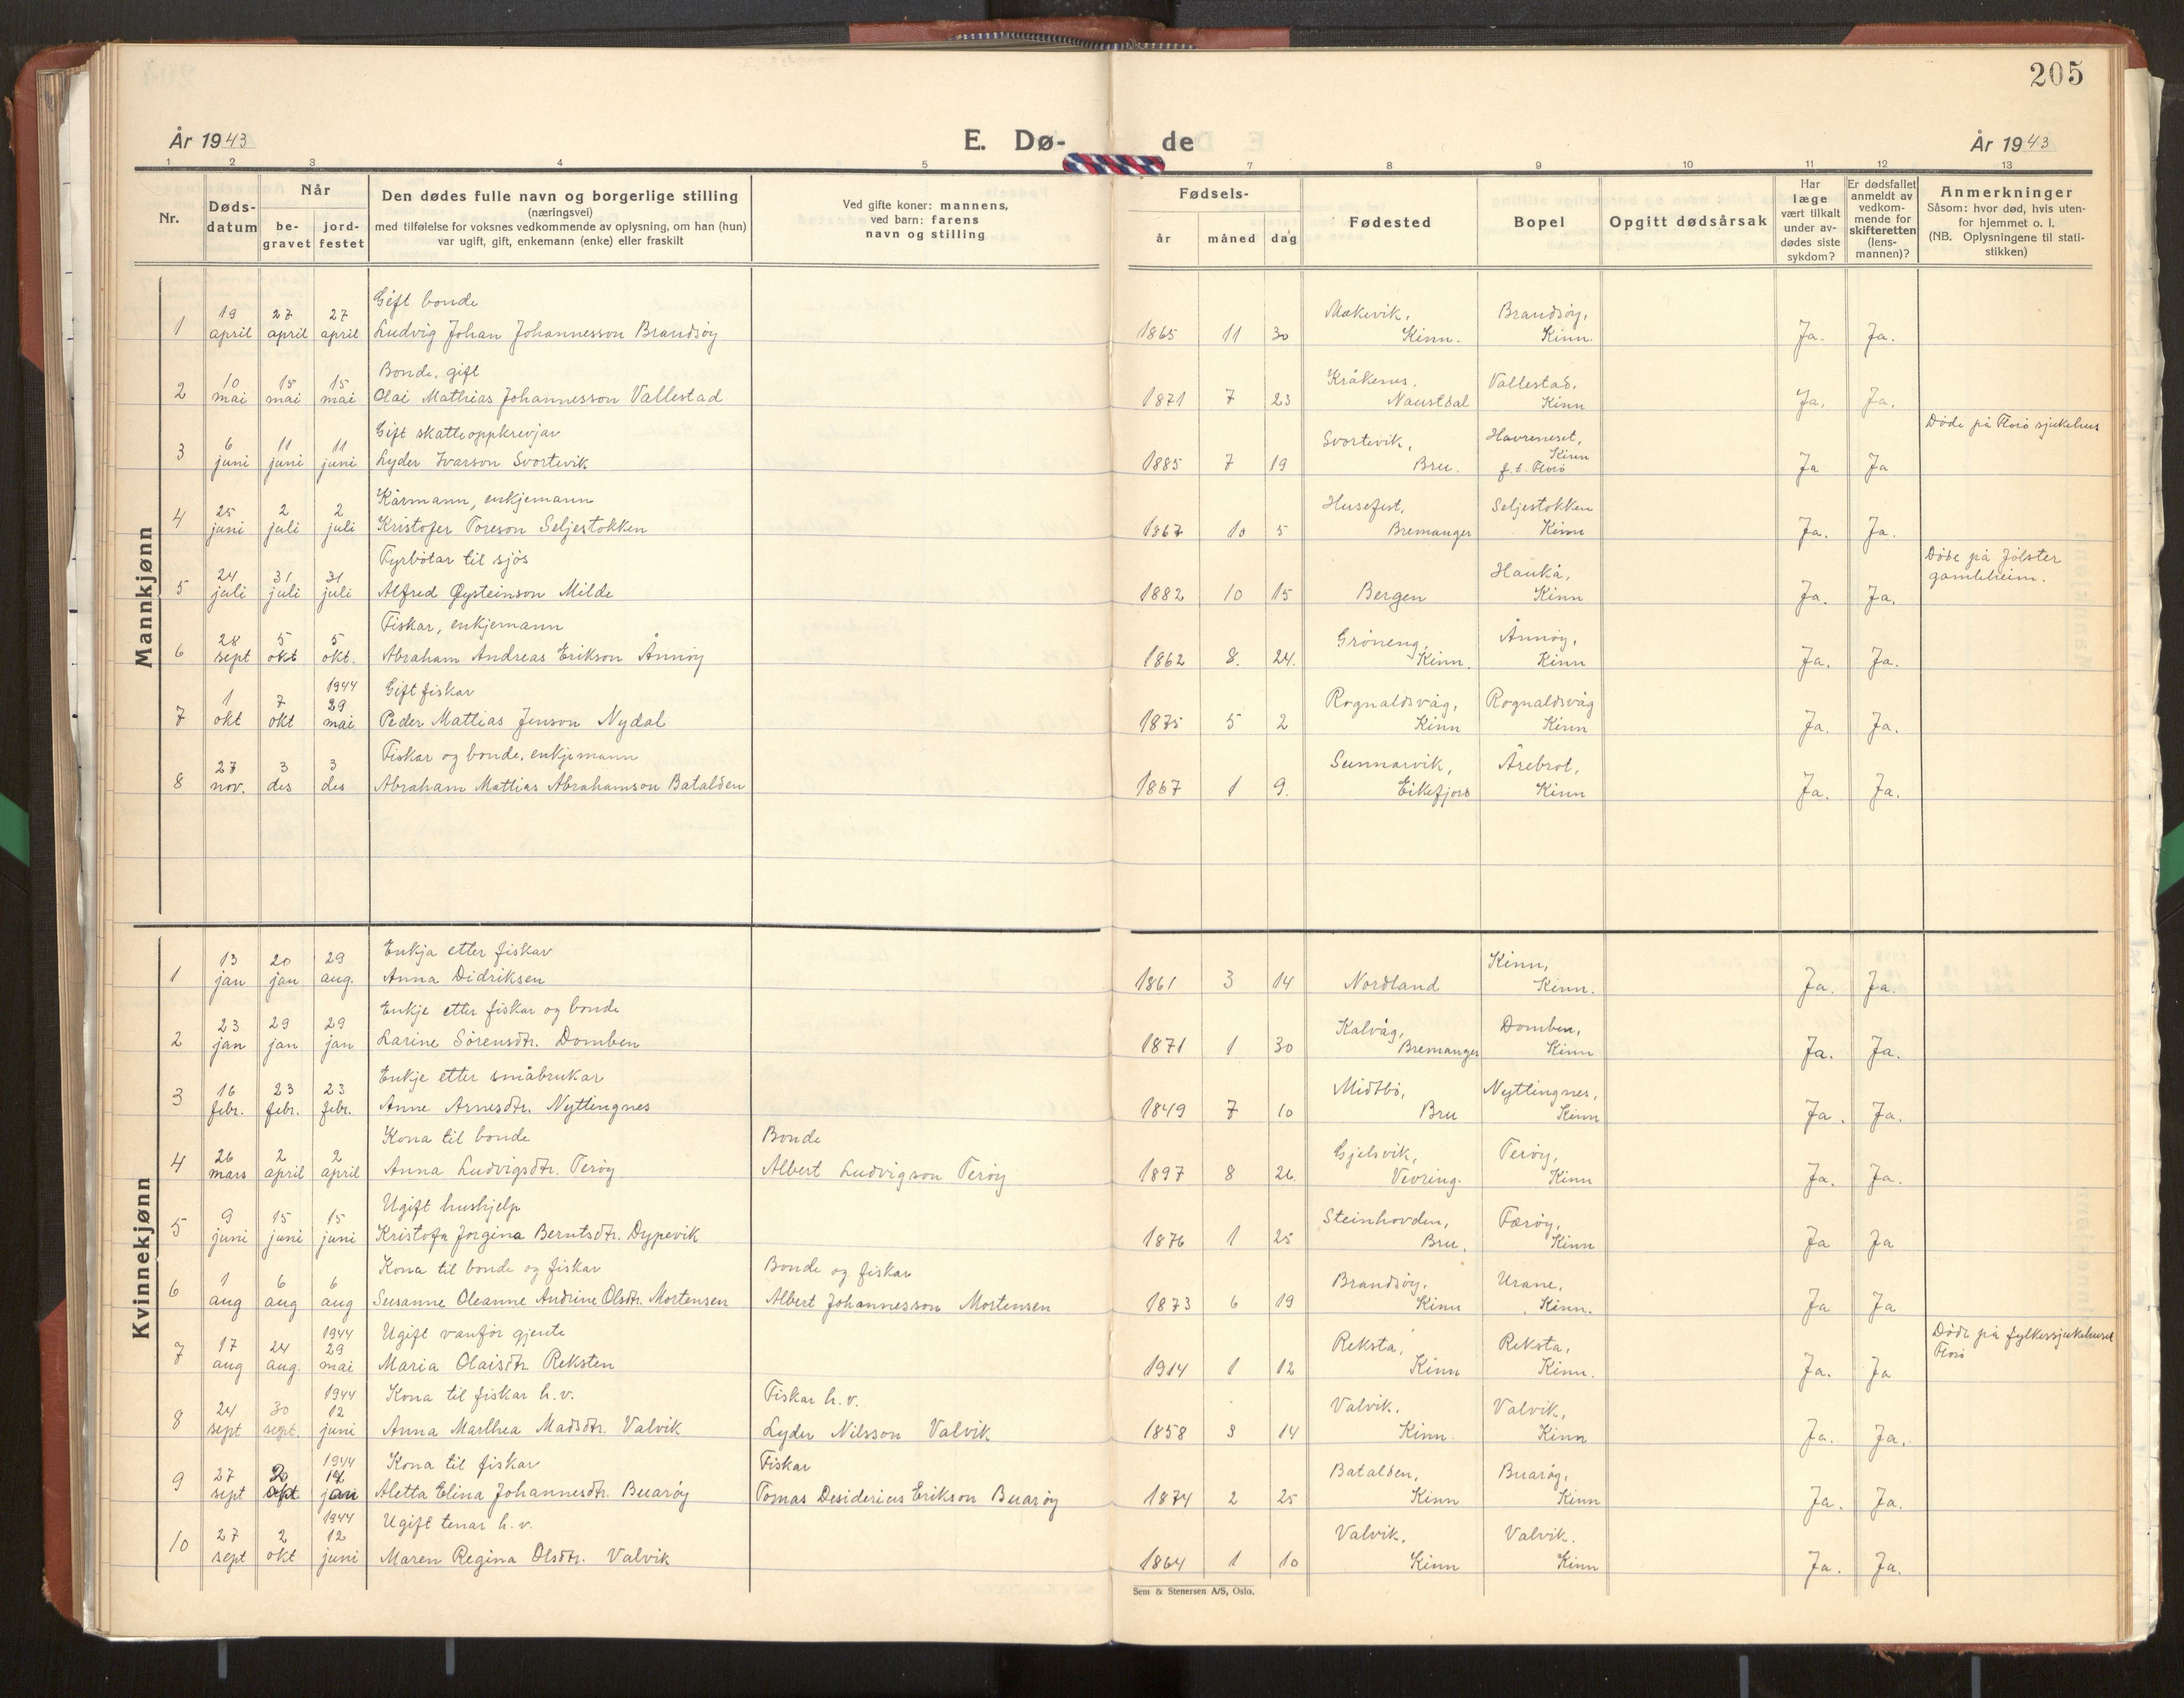 205
År 1943
E. Dø-
de
År 1943
1 2 3 4 5 7 8 9 10 11 12 13
Nr.
Døds-
datum
Når
be-
gravet
jord-
festet
Den dødes fulle navn og borgerlige stilling
(næringsvei)
med tilføielse for voksnes vedkommende av oplysning, om han (hun)
var ugift, gift, enkemann (enke) eller fraskilt
Ved gifte koner: mannens,
ved barn: farens
navn og stilling
Fødsels-
år måned dag
Fødested
Bopel
Opgitt dødsårsak
Har
læge
vært tilkalt
under av-
dødes siste
sykdom?
Er dødsfallet
anmeldt av
vedkom-
mende for
skifteretten
(lens-
mannen)?
Anmerkninger
Såsom: hvor død, hvis uten-
for hjemmet o. l.
(NB. Oplysningene til stati-
stikken)
Mannkjønn
Gift bonde Brandsøy,
19 27 27
1 april april april Ludvig Johan Johannesson Brandsøy 1865 11 30 Kinn. Kinn. Ja. Ja.
Bonde, gift Vallestad,
10 15 15
2 mai mai mai Olai Mathias Johannesson Vallestad 1871 7 23 Naustdal Kinn Ja. Ja.
Gift skatteoppkrevjar Svortevik, Havreneset, Døde på Florø sjukehus
6 11 11 Kinn
3 juni juni juni Lyder Ivarson Svortevik 1885 7 19 Bru. f.t. Florø Ja Ja
Kårmann, enkjemann Husefest, Seljestokken
25 2 2
4 juni juli juli Kristofer Toreson Seljestokken 1867 10 5 Bremanger Kinn Ja. Ja.
Fyrbøtar til sjøs Haukå, Døde på Jølster
24 31 31 gamleheim.
5 juli juli juli Alfred Øysteinson Milde 1882 10 15 Bergen Kinn Ja. Ja.
Fiskar, enkjemann Grøneng, Ånnøy,
28 5 5
6 sept okt okt. Abraham Andreas Erikson Ånnøy 1862 8. 24. Kinn. Kinn Ja. Ja.
1944 Gift fiskar Rognaldsvåg, Rognaldsvåg
1 7 29
7 okt okt mai Peder Mattias Jenson Nydal 1875 5 2 Kinn Kinn Ja. Ja.
Fiskar og bonde, enkjemann Sunnarvik, Årebrot,
27 3 3
8 nov. des des Abraham Mattias Abrahamson Batalden 1867 1 9. Eikefjord Kinn Ja. Ja.
Kvinnekjønn
Enkja etter fiskar Kinn,
13 20 29
1 jan jan aug. Anna Didriksen 1861 3 14 Nordland Kinn. Ja. Ja.
Enkje etter fiskar og bonde Kalvåg, Domben,
23 29 29
2 jan jan jan Larine Sørensdtr. Domben 1871 1 30 Bremanger Kinn Ja. Ja.
Enkje etter småbrukar Midtbø, Nyttingnes,
16 23 23
3 febr. febr. febr. Anne Arnesdtr. Nyttingnes 1849 7 10 Bru Kinn Ja. Ja.
Kona til bonde Bonde Gjelsvik, Terøy,
26 2 2
4 mars april april Anna Ludvigsdtr. Terøy Albert Ludvigson Terøy 1897 8 26. Vevring. Kinn Ja. Ja.
Ugift hushjelp Steinhovden, Færøy,
9 15 15
5 juni juni juni Kristofa Jorgina Berntsdtr. Dypevik 1876 1 25 Bru. Kinn Ja Ja
Kona til bonde og fiskar Bonde og fiskar Brandsøy, Urane,
1 6 6
6 aug aug aug Susanne Oleanne Andrine Olsdtr. Mortensen Albert Johannesson Mortensen 1873 6 19 Kinn Kinn. Ja Ja
1944 Ugift vanfør gjente Reksta, Reksta, Døde på fylkessjukehuset
17 24 29 Florø
7 aug aug. mai Maria Olaisdtr. Reksten 1914 1 12 Kinn Kinn. Ja. Ja
1944 Kona til fiskar h.v. Fiskar h.v. Valvik, Valvik,
24 30 12
8 sept sept. juni Anna Marthea Madsdtr. Valvik Lyder Nilsson Valvik 1858 3 14 Kinn Kinn Ja. Ja.
1944 Kona til fiskar Fiskar Batalden, Buarøy,
27
9 sept Aletta Elina Johannesdtr. Buarøy Tomas Desiderius Erikson Buarøy 1874 2 25 Kinn Kinn Ja. Ja.
1944 Ugift tenar h.v. Valvik, Valvik.
27 2 12
10 sept okt juni Maren Regina Olsdtr. Valvik 1864 1 10 Kinn Kinn Ja. Ja.
Sem & Stenersen A/S, Oslo.